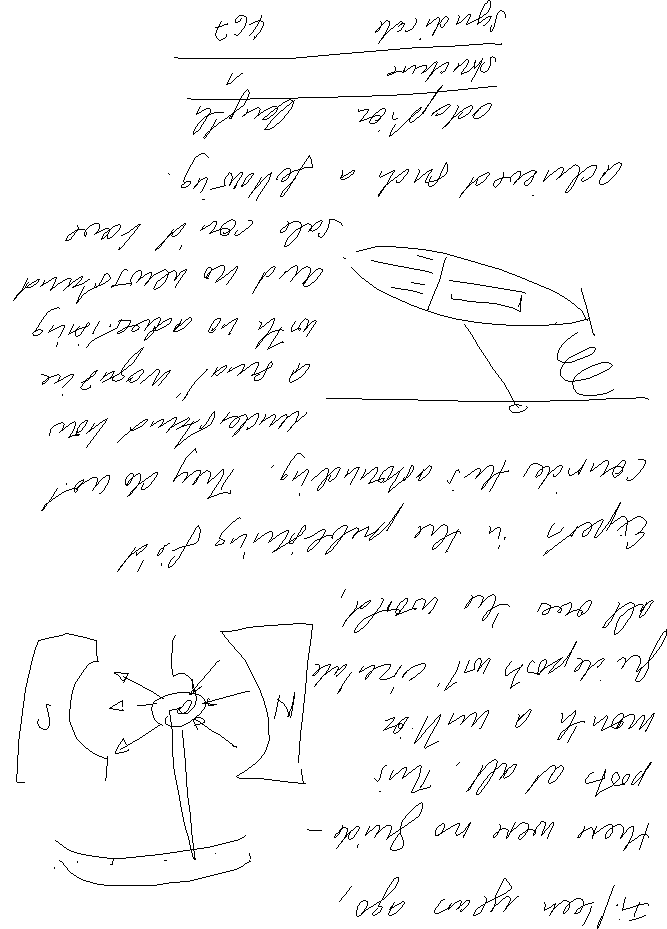 Fifteen years ago,
there were no guide-
posts at all. This
month a million
guideposts will circulate
all over the world.
N S
Experts in the publishing field
consider this astounding. They do not
understand how
a small magazine
with no advertising
and no newsstand
sale could have
achieved such a following.
length
structure 1
Syndicate 467